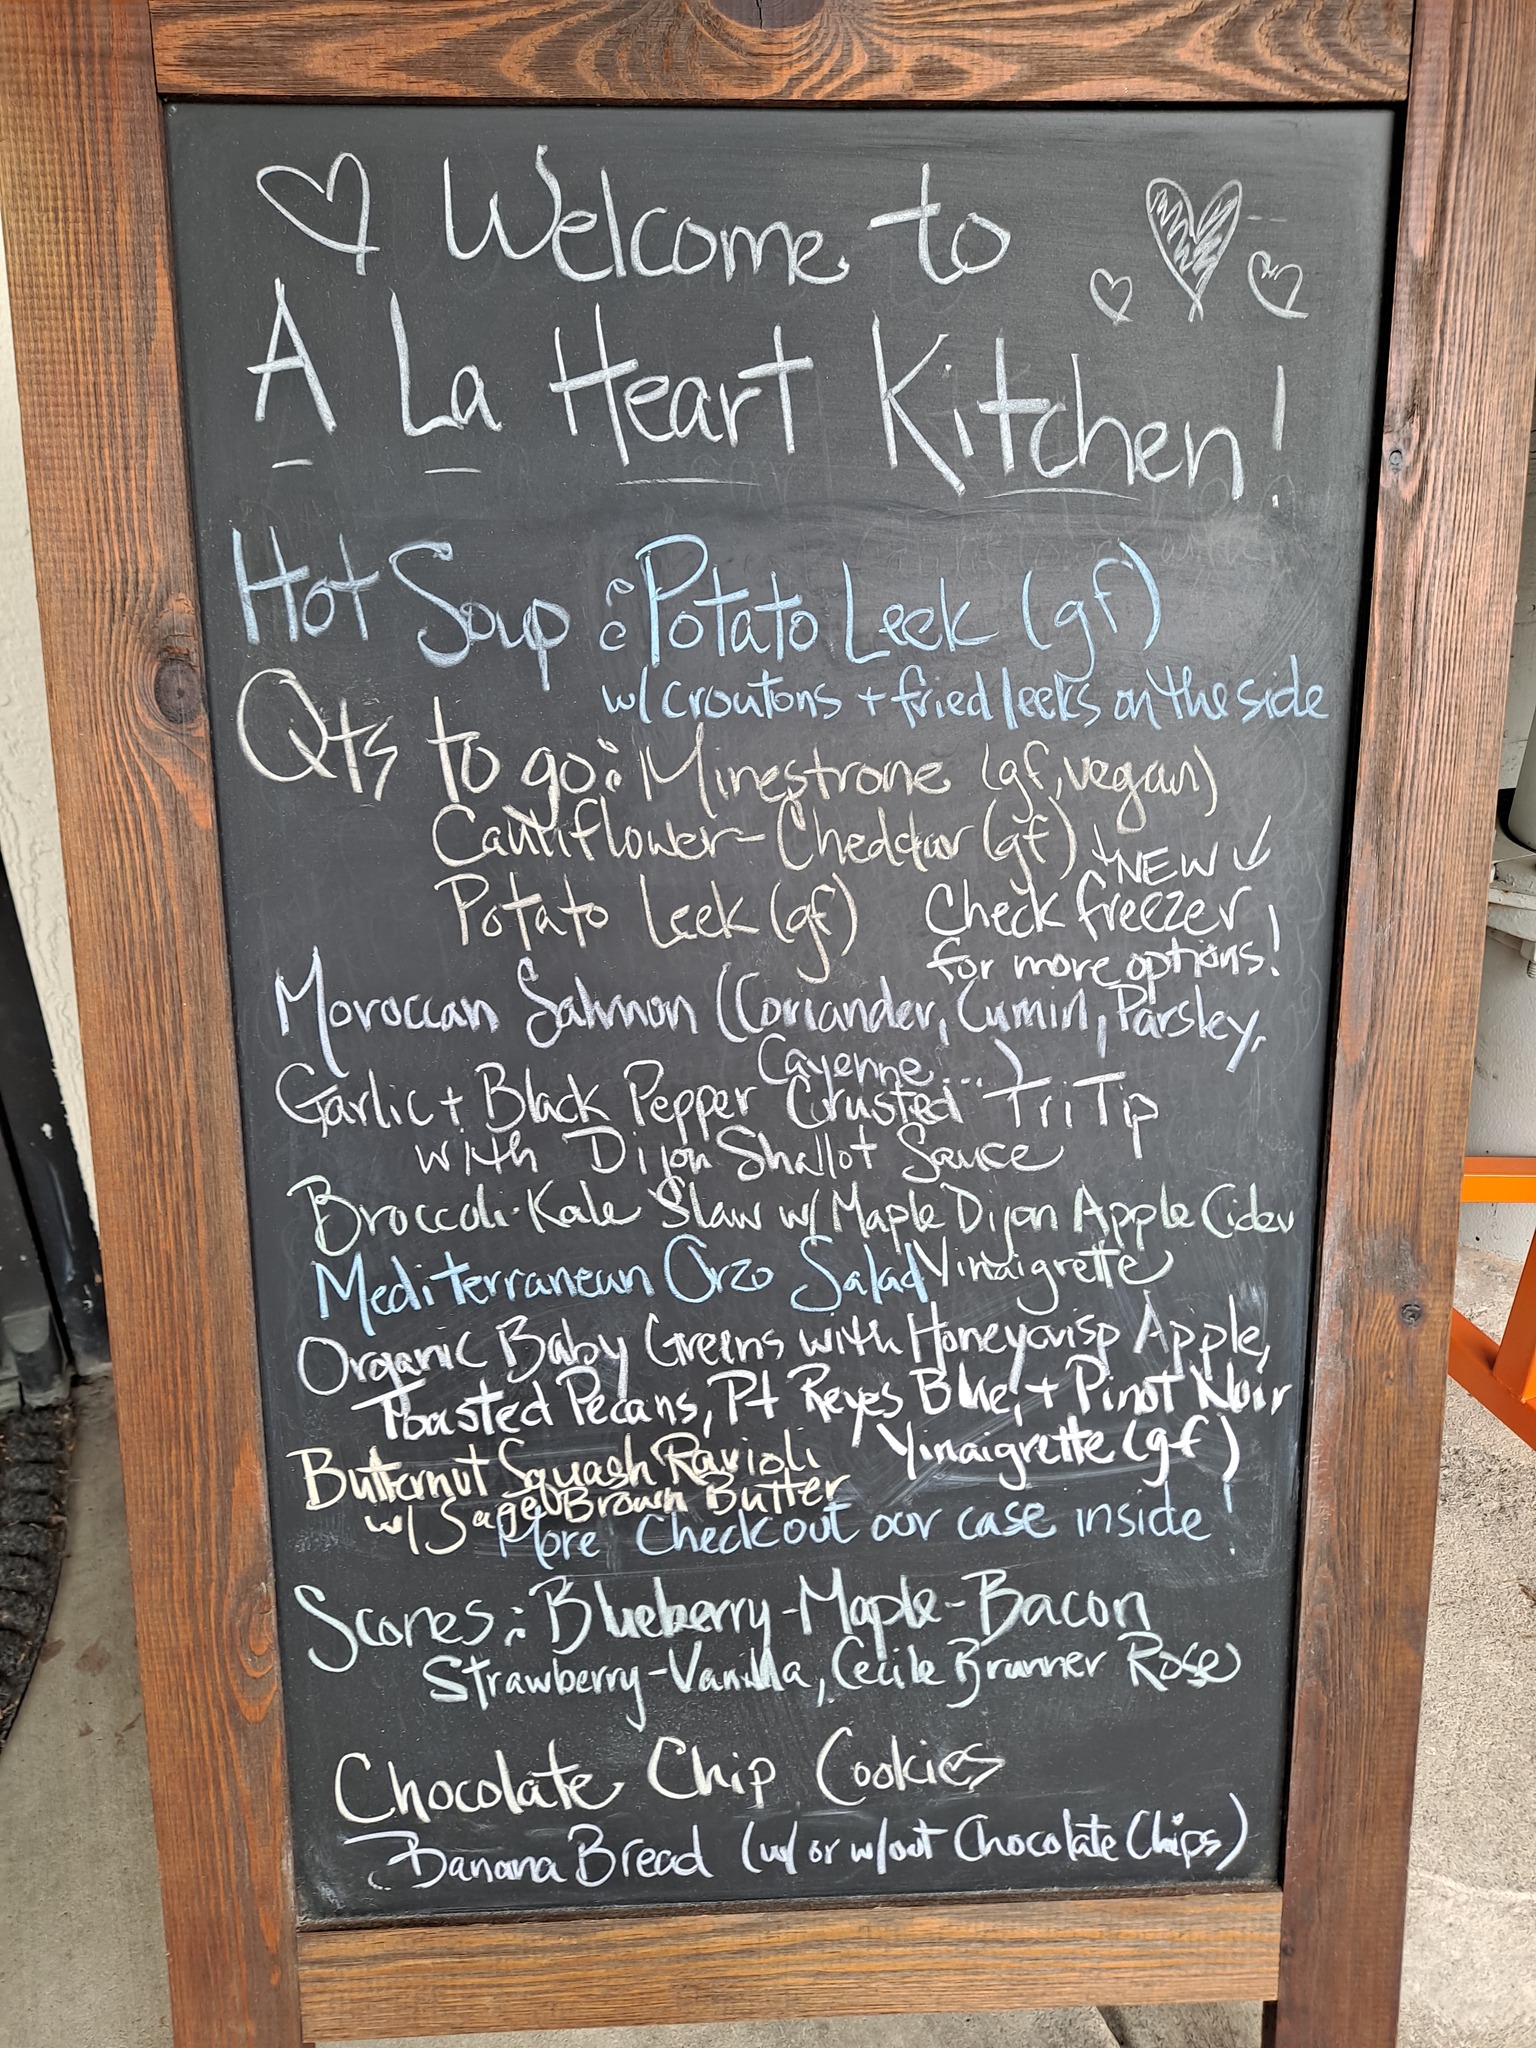 Welcome to
A La Heart Kitchen!
Hot Soup : Potato Leek (gf)
w/ croutons + fried leeks on the side
Qts to go: Minestrone (gf, vegan)
Cauliflower-Cheddar (gf)
Potato Leek (gf)
+NEW
Check freezer
for more options!
Moroccan Salmon (Coriander, Cumin, Parsley,
Cayenne...)
Garlic + Black Pepper Crusted Tri Tip
with Dijon Shallot Sauce
Broccoli-Kale Slaw w/ Maple Dijon Apple Cider
Vinaigrette
Mediterranean Orzo Salad
Organic Baby Greens with Honeycrisp Apple,
Toasted Pecans, Pt Reyes Blue, + Pinot Noir
Vinaigrette (gf)
Butternut Squash Ravioli
w/ Sage Brown Butter
More Check out our case inside!
Scones: Blueberry-Maple-Bacon
Strawberry-Vanilla, Cecile Brunner Rose
Chocolate Chip Cookies
Banana Bread (w/ or w/out Chocolate Chips)